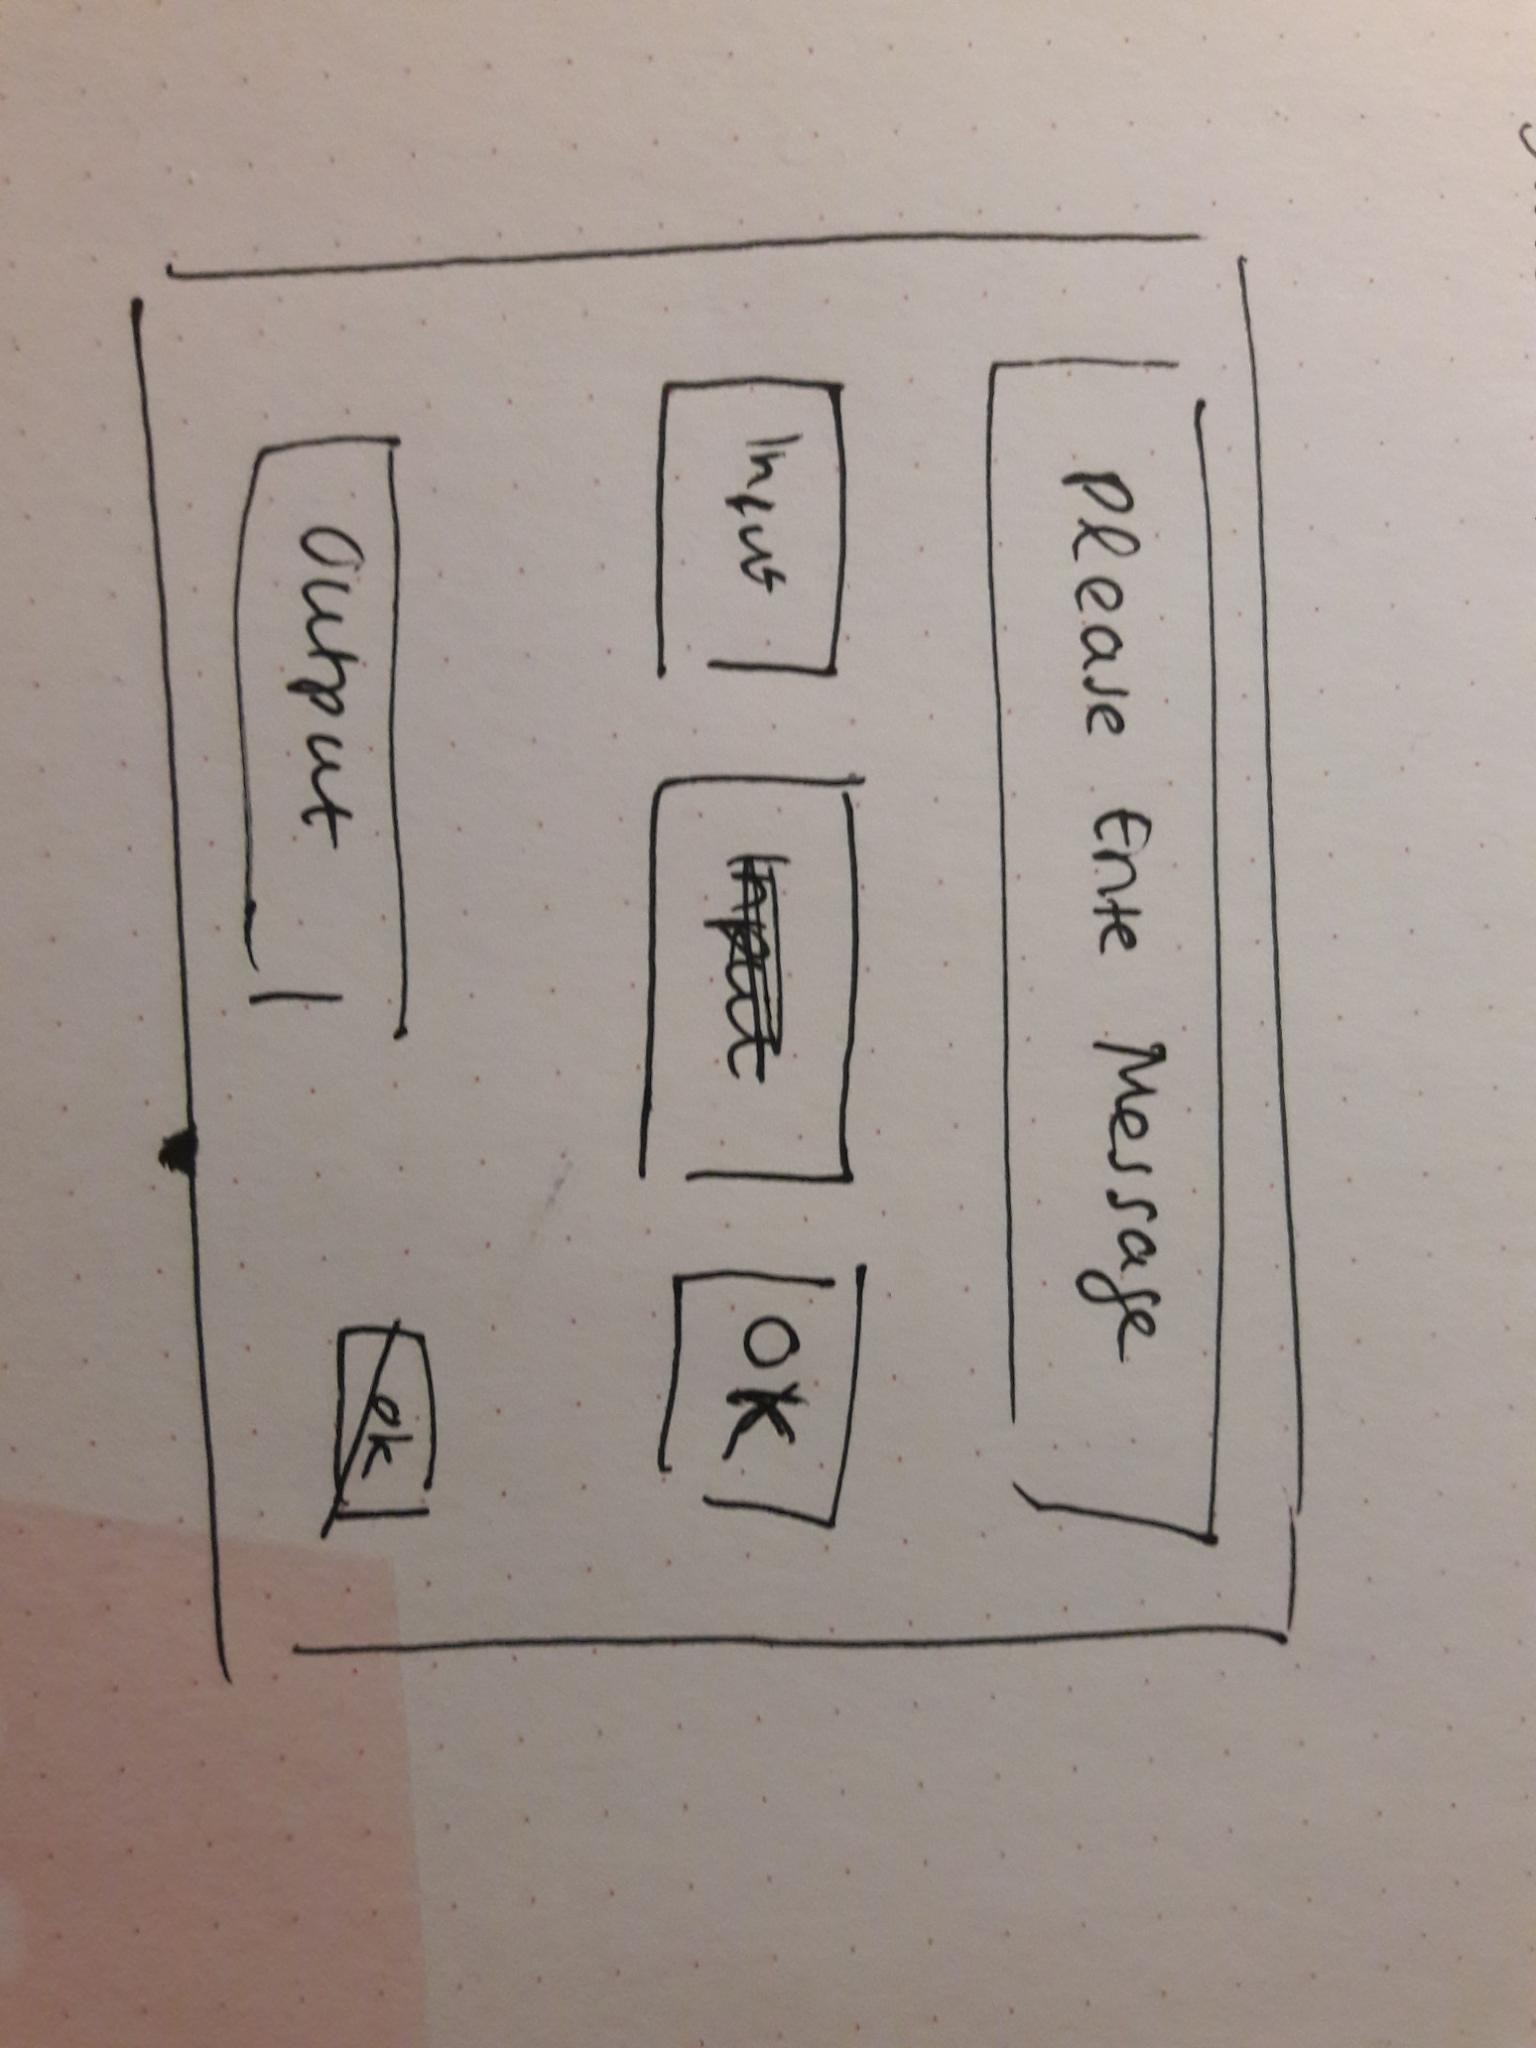 Please Ente Message
Input
Input
OK
Output
ok